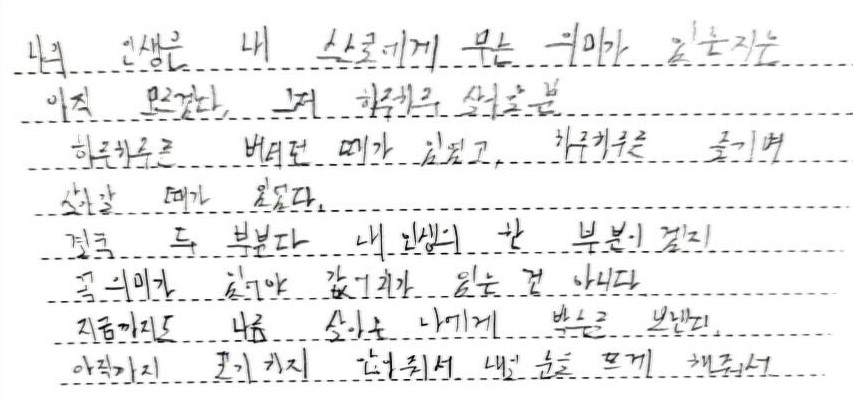 나의 인생은 내 스스로에게 무슨 의미가 있는지는
아직 모르겠다, 그저 하루하루 살아갈 뿐
하루하루를 버티던 때가 있었고, 하루하루를 즐기며
살아갈 때가 있었다.
결국 두 부분다 내 인생의 한 부분이 겠지
꼭 의미가 있어야 값어치가 있는 건 아니다
지금까지도 나름 살아온 나에게 박수를 보낸다.
아직까지 포기하지 않아줘서 내일 눈을 뜨게 해줘서